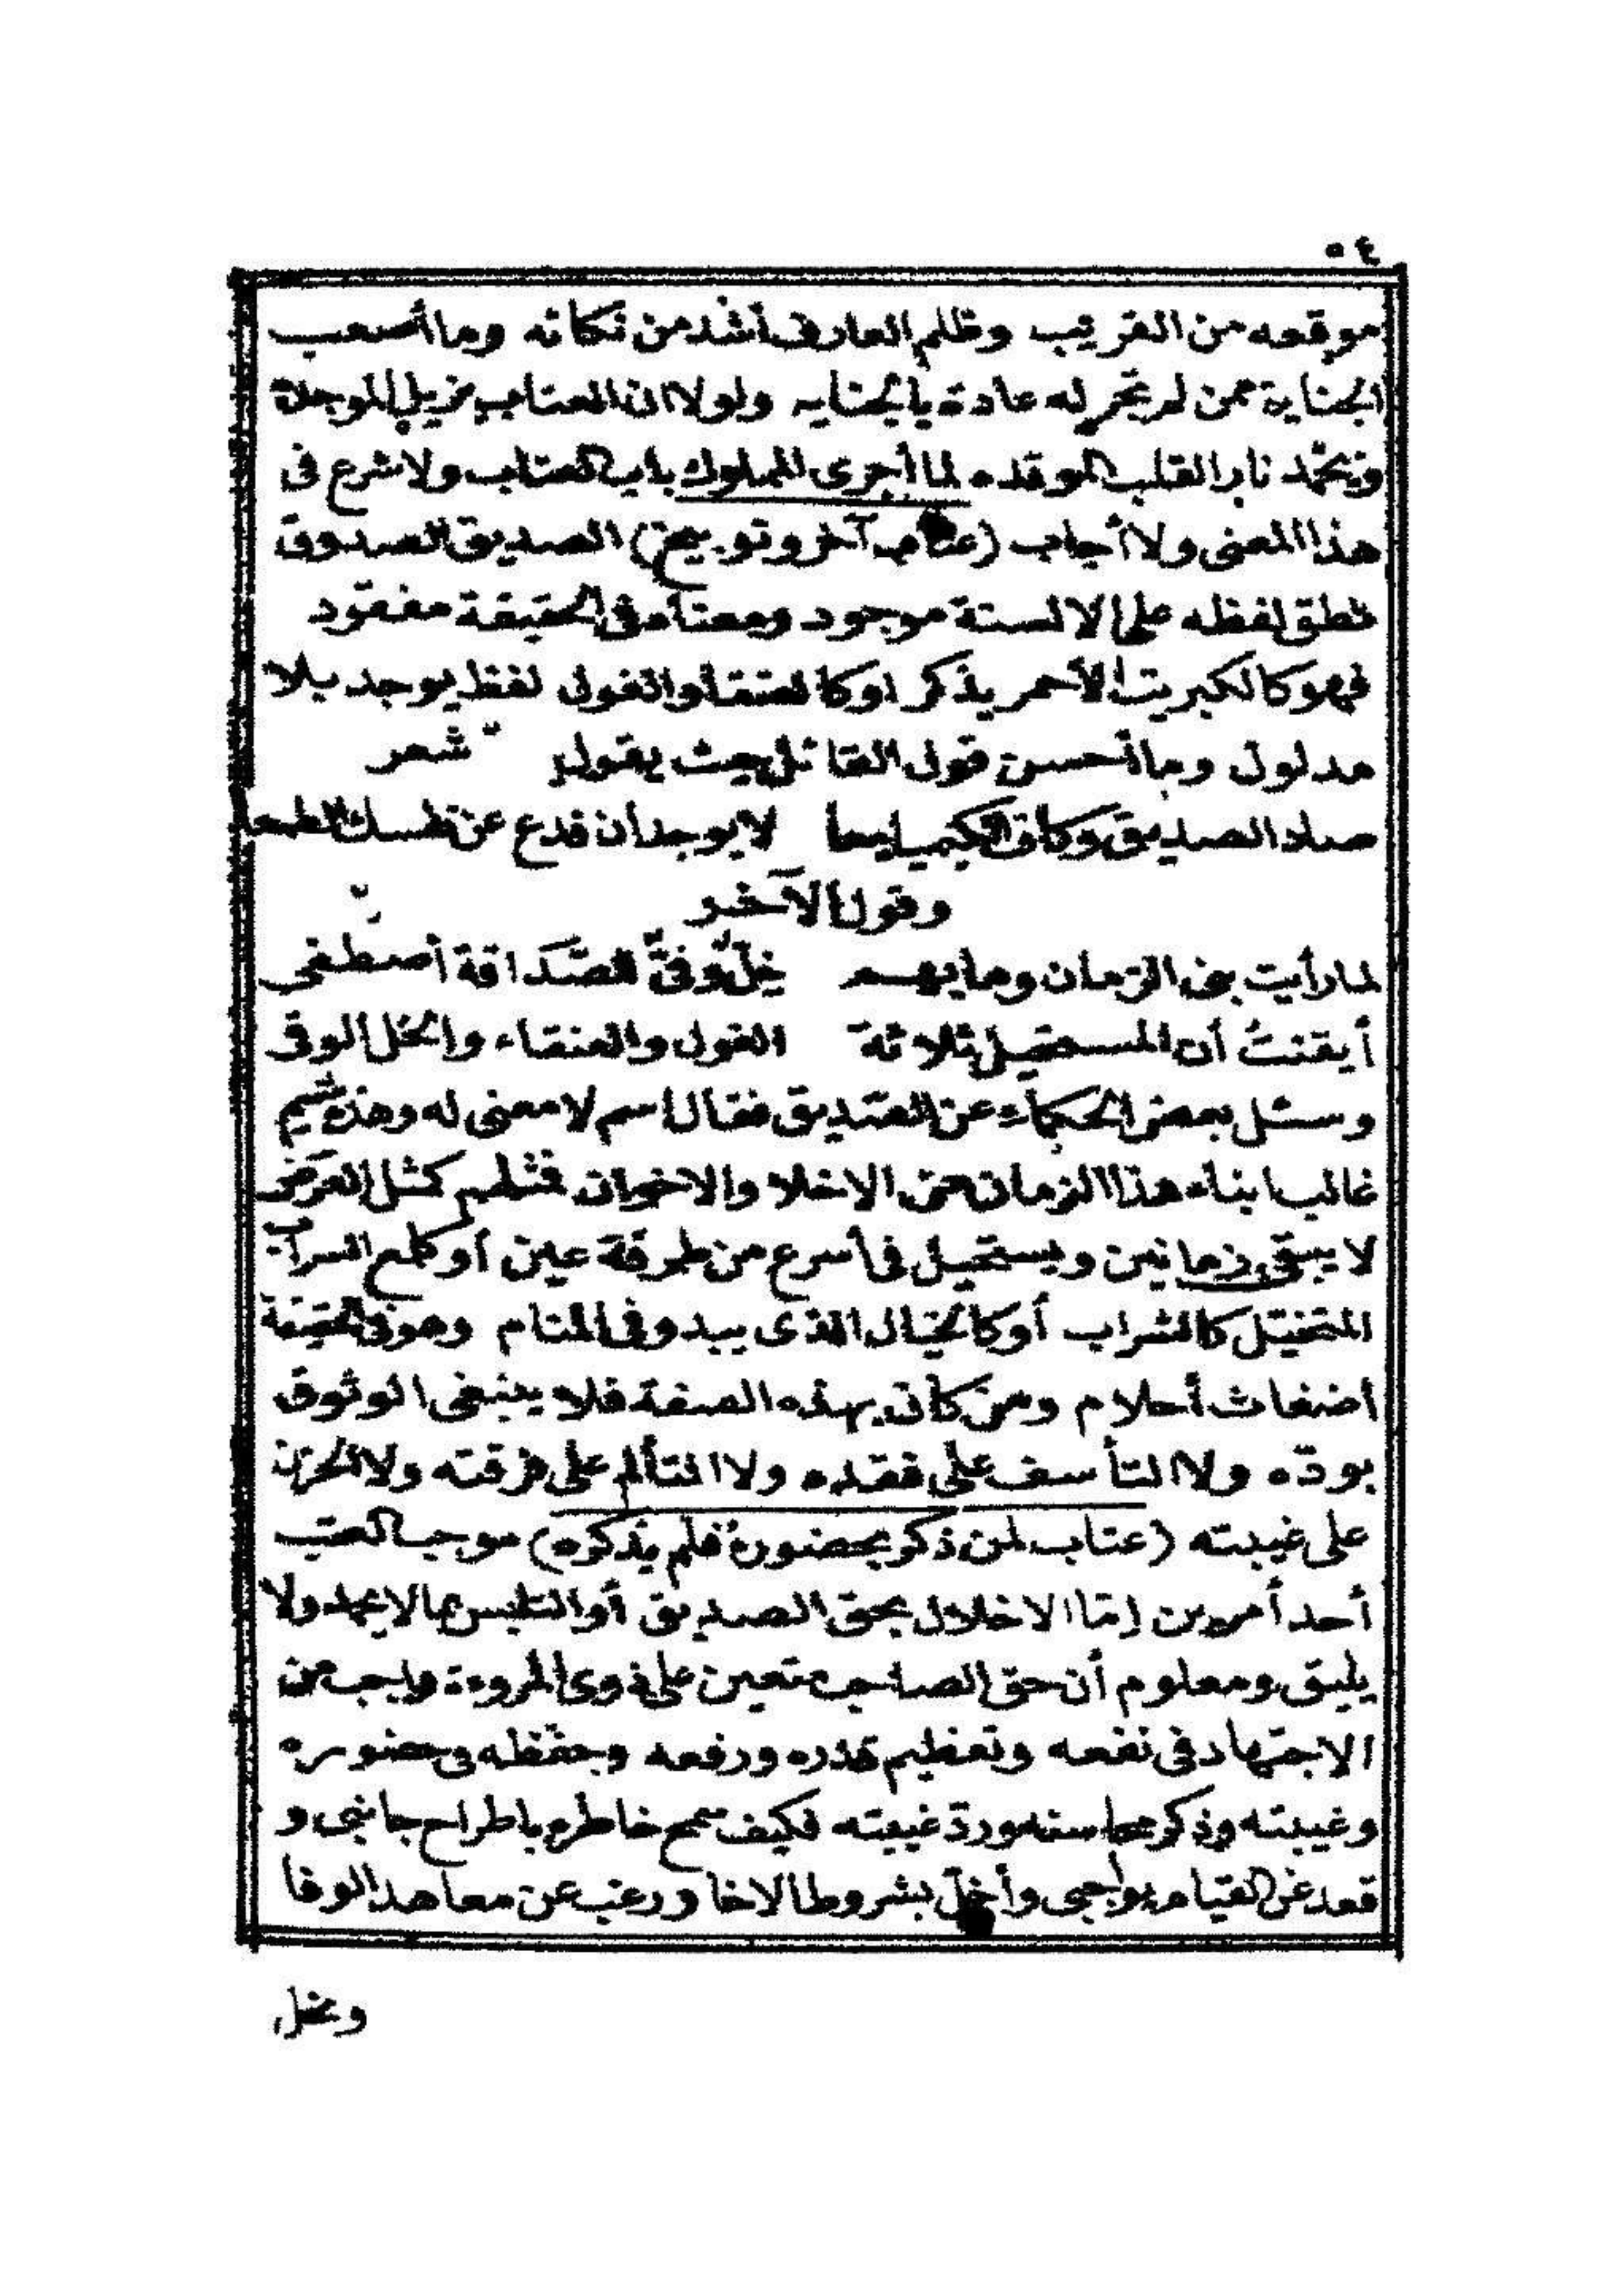 ٥٤
موقعه من القريب وظلم العارف أشد من نكاته وما أصعب
الجناية ممن لم تجر له عادة بالجنايه ولولا ان العتاب يزيل الموجدة
ويخمد نار القلب الموقده لما أجرى المملوك باب العتاب ولا شرع فى
هذا المعنى ولا أجاب (عتاب آخر وتوبيخ) الصديق الصدوق
نطق لفظه على الالسنة موجود ومعناه فى الحقيقة مفقود
فهو كالكبريت الأحمر يذكر او كالعنقا والغول لفظ يوجد بلا
مدلول وما أحسن قول القائل حيث يقول شعر
صاد الصديق وكاف الكيميا معا لا يوجدان فدع عن نفسك الطمعا
وقول الآخر
لما رأيت بنى الزمان وما بهم خِلّ وفىّ للصَّدَاقة أصطفى
أيقنتُ أن المستحيل ثلاثة الغول والعنقاء والخل الوفى
وسئل بعض الحكماء عن الصَّديق فقال اسم لا معنى له وهذه شيم
غالب ابناء هذا الزمان من الاخلا والاخوان فمثلهم كمثل العَرَض
لا يبقى زمانين ويستحيل فى أسرع من طرفة عين أو كلمع السراب
المتخيَل كالشراب أو كالخيال الذى يبدو فى المنام وهو فى الحقيقة
أضغاث أحلام ومن كان بهذه الصفة فلا ينبغى الوثوق
بودّه ولا التأسف على فقده ولا التألم على فرقته ولا الحزن
على غيبته (عتاب لمن ذكر بحضوره فلم يذكره) موجب العتب
أحد أمرين إمّا الاخلال بحق الصديق أو التلبس بما لا يحمد ولا
يليق ومعلوم أن حق الصاحب متعين على ذوى المروءة واجب من
الاجتهاد فى نفعه وتعظيم قدره ورفعه وحفظه فى حضوره
وغيبته وذكر محاسنه وردّ غيبته فكيف سمح خاطره باطراح جانبى و
قعد عن القيام بواجبى وأخلّ بشروط الاخا ورغب عن معاهد الوفا